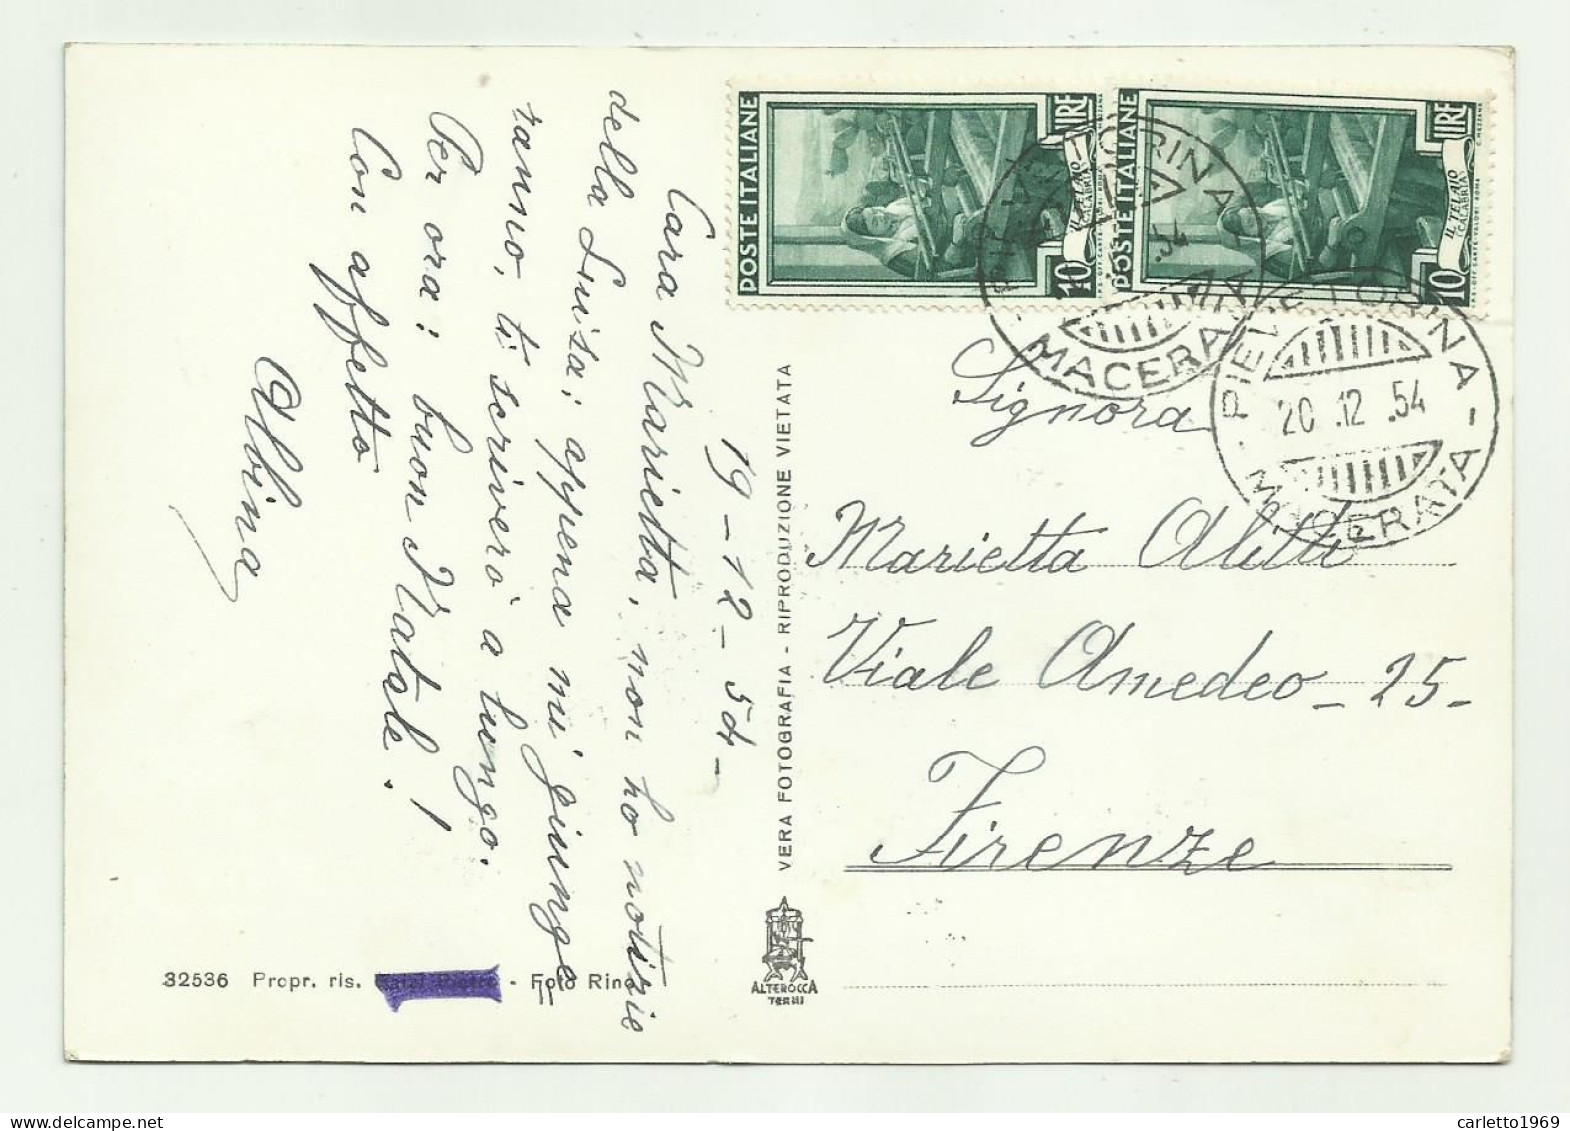 19-12-54-
Cara Marietta, non ho notizie
della Luisa; appena mi giunge=
ranno, ti scriverò a lungo.
Per ora: buon Natale!
Con affetto
Albina
POSTE ITALIANE
10 LIRE
IL TELAIO
(CALABRIA)
POSTE ITALIANE
10 LIRE
IL TELAIO
(CALABRIA)
PIEVETORINA
MACERATA
PIEVETORINA - MACERATA -
20.12.54
Signora
Marietta
Viale Amedeo - 25-
Firenze
VERA FOTOGRAFIA - RIPRODUZIONE VIETATA
ALTEROCCA
TERNI
32536 Propr. ris. - Foto Rino
carletto1969